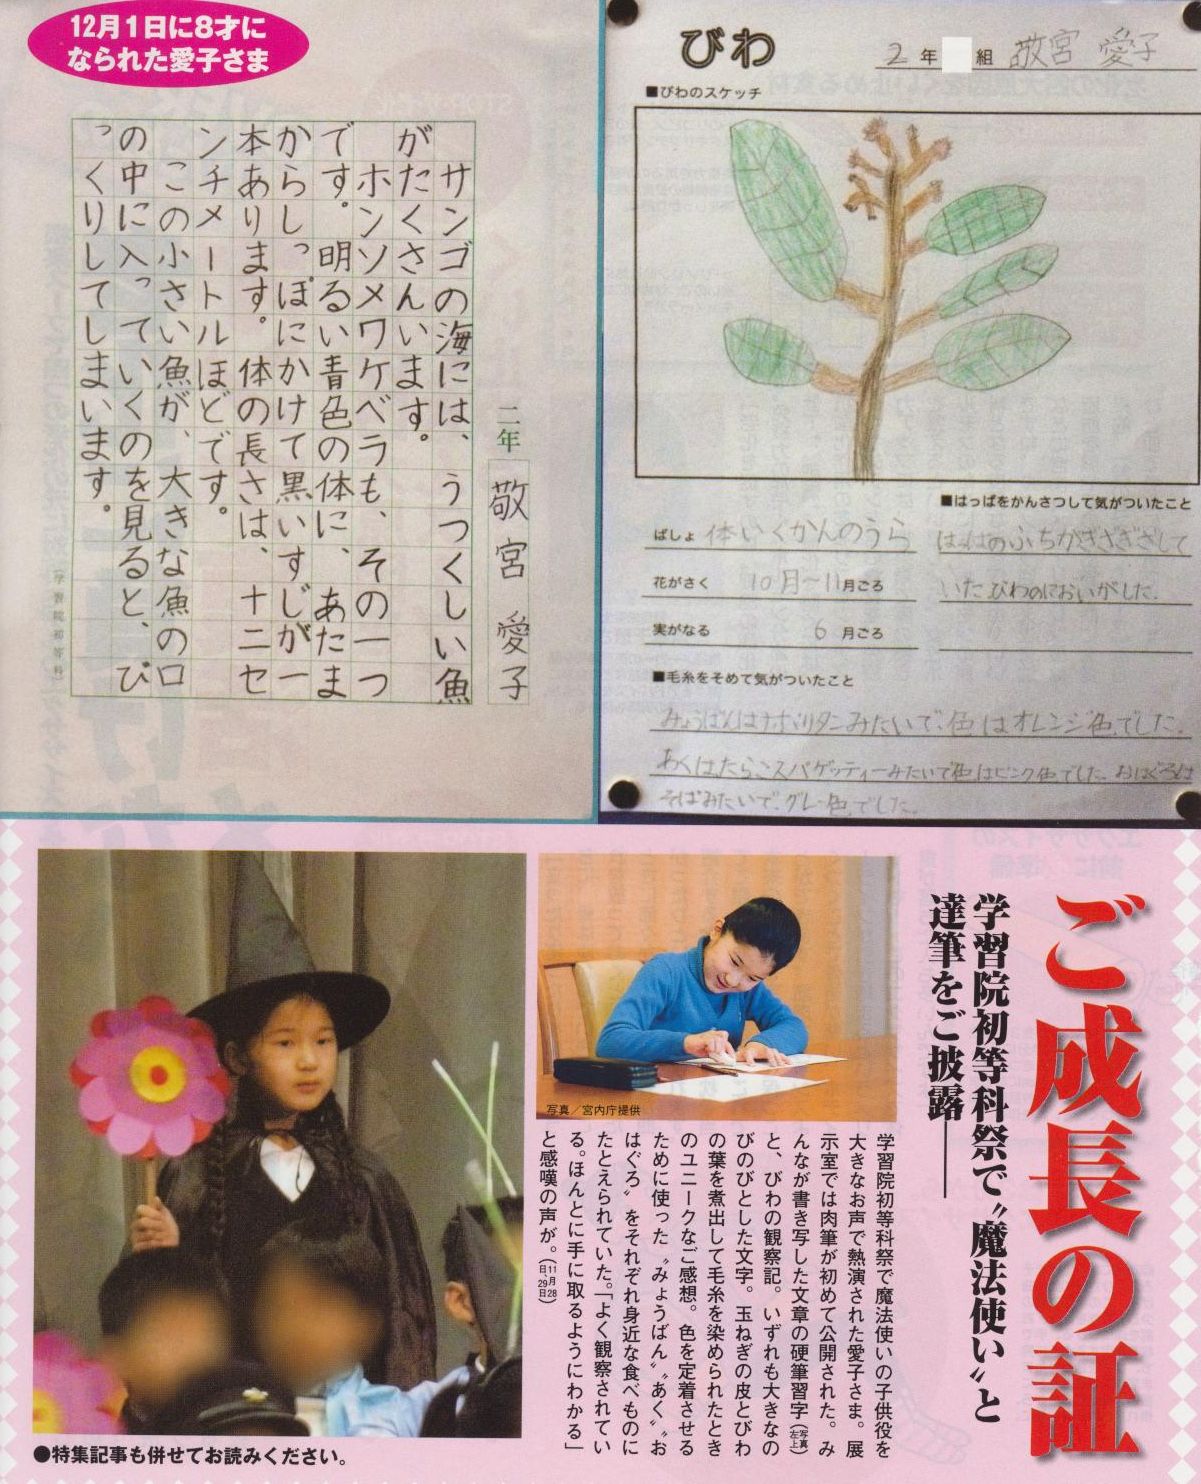 12月1日に8才に
なられた愛子さま
二年 敬宮 愛子
サンゴの海には、うつくしい魚
がたくさんいます。
ホンソメワケベラも、その一つ
です。明るい青色の体に、あたま
からしっぽにかけて黒いすじが一
本あります。体の長さは、十二セ
ンチメートルほどです。
この小さい魚が、大きな魚の口
の中に入っていくのを見ると、び
っくりしてしまいます。
(学習院初等科)
びわ
2年 組 敬宮 愛子
■びわのスケッチ
■はっぱをかんさつして気がついたこと
はっぱのふちがぎざぎざして
いた びわのにおいがした。
ばしょ 体いくかんのうら
花がさく 10月〜11月ごろ
実がなる 6月ごろ
■毛糸をそめて気がついたこと
みょうばんはナポリタンみたいで、色はオレンジ色でした。
あくはたらこスパゲッティーみたいで色はピンク色でした。おはぐろは
そばみたいで、グレー色でした。
ご成長の証
学習院初等科祭で〝魔法使い〟と
達筆をご披露――
写真/宮内庁提供
学習院初等科祭で魔法使いの子供役を
大きなお声で熱演された愛子さま。展
示室では肉筆が初めて公開された。み
んなが書き写した文章の硬筆習字(写真左上)
と、びわの観察記。いずれも大きなの
びのびとした文字。玉ねぎの皮とびわ
の葉を煮出して毛糸を染められたとき
のユニークなご感想。色を定着させる
ために使った〝みょうばん〟〝あく〟〝お
はぐろ〟をそれぞれ身近な食べものに
たとえられていた。「よく観察されてい
る。ほんとに手に取るようにわかる」
と感嘆の声が。(11月28日29日)
●特集記事も併せてお読みください。